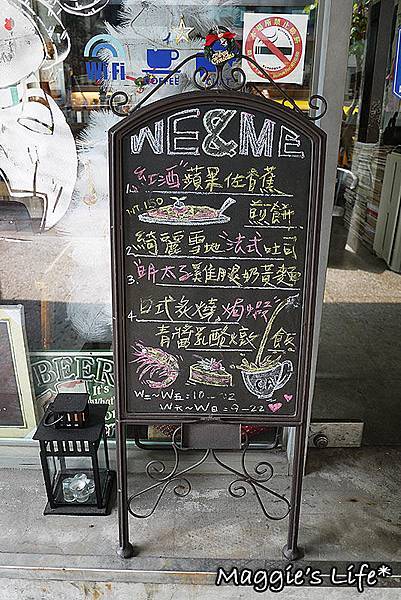 WiFi
COFFEE
WE&ME
1. 紅酒蘋果佐香蕉
NT.150 煎餅
2. 綺麗雪地法式吐司
3. 明太子雞腿奶黃麵
4. 日式炙燒焗蝦
青醬乳酪燉飯
W一~W五=10-22
W六~W日=9-22
BEER
It's
What
Maggie's Life*